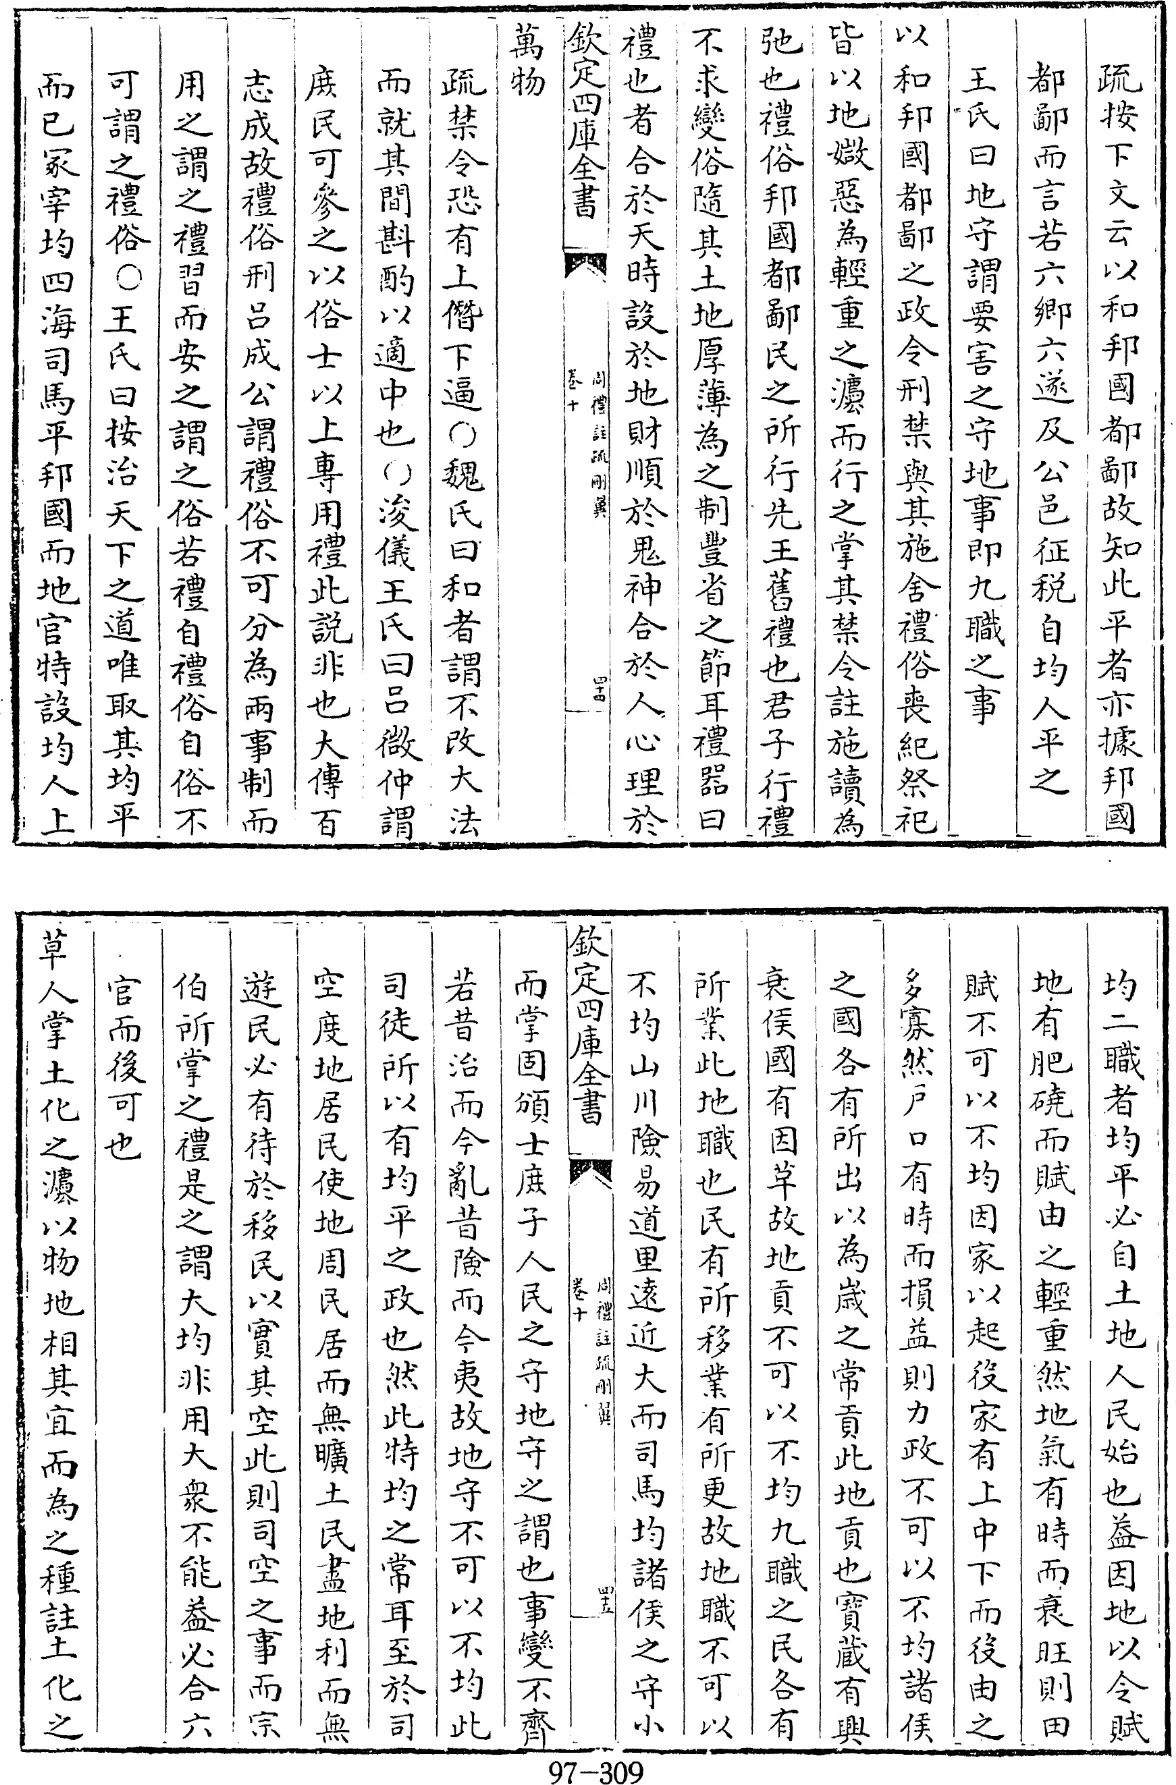 疏按下文云以和邦國都鄙故知此平者亦據邦國
都鄙而言若六鄉六遂及公邑征税自均人平之
王氏曰地守謂要害之守地事即九職之事
以和邦國都鄙之政令刑禁與其施舍禮俗喪紀祭祀
皆以地媺惡為輕重之灋而行之掌其禁令註施讀為
弛也禮俗邦國都鄙民之所行先王舊禮也君子行禮
不求變俗隨其土地厚薄為之制豐省之節耳禮器曰
禮也者合於天時設於地財順於鬼神合於人心理於
欽定四庫全書
周禮註疏刪翼
卷十
四十四
萬物
疏禁令恐有上僭下逼○魏氏曰和者謂不改大法
而就其間斟酌以適中也○浚儀王氏曰呂微仲謂
庶民可參之以俗士以上專用禮此説非也大傳百
志成故禮俗刑呂成公謂禮俗不可分為兩事制而
用之謂之禮習而安之謂之俗若禮自禮俗自俗不
可謂之禮俗○王氏曰按治天下之道唯取其均平
而已冢宰均四海司馬平邦國而地官特設均人上
均二職者均平必自土地人民始也葢因地以令賦
地有肥磽而賦由之輕重然地氣有時而衰旺則田
賦不可以不均因家以起役家有上中下而役由之
多寡然戶口有時而損益則力政不可以不均諸侯
之國各有所出以為歲之常貢此地貢也寶蔵有興
衰侯國有因革故地貢不可以不均九職之民各有
所業此地職也民有所移業有所更故地職不可以
不均山川險易道里遠近大而司馬均諸侯之守小
欽定四庫全書
周禮註疏刪翼
卷十
四十五
而掌固頒士庶子人民之守地守之謂也事變不齊
若昔治而今亂昔險而今夷故地守不可以不均此
司徒所以有均平之政也然此特均之常耳至於司
空度地居民使地周民居而無曠土民盡地利而無
遊民必有待於移民以實其空此則司空之事而宗
伯所掌之禮是之謂大均非用大衆不能葢必合六
官而後可也
草人掌土化之灋以物地相其宜而為之種註土化之
97-309